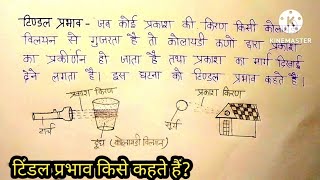 टिण्डल प्रभाव - जब कोई प्रकाश की किरण किसी कोल
विलयन से गुजरता है तो कोलायडी कणो द्वारा प्रकाश
का प्रकीर्णन हो जाता है तथा प्रकाश का मार्ग दिखाई
देने लगता है। इस घटना को टिण्डल प्रभाव कहते हैं।
KINEMASTER
प्रकाश किरण
प्रकाश किरण
टार्च
सूर्य
दूध (कोलायडी विलयन)
टिंडल प्रभाव किसे कहते हैं?